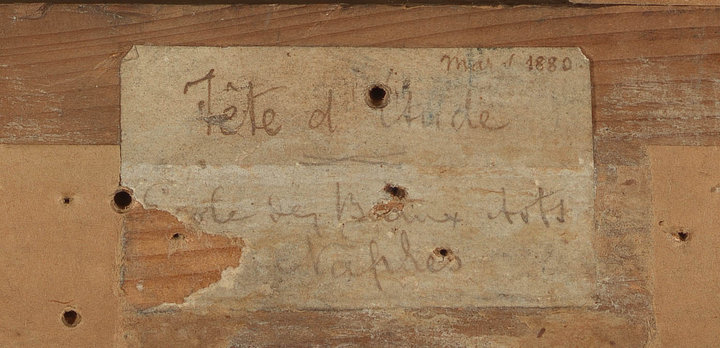 1880
Tête d'Etude
Ecole des Beaux Arts
Naples